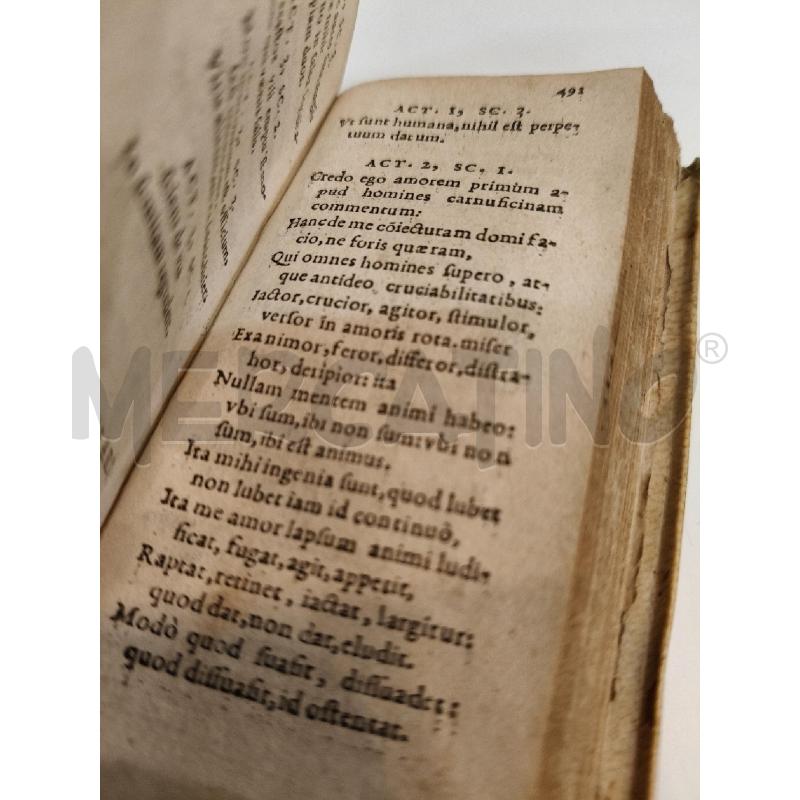 491
ACT. 1, SC. 3.
Vt sunt humana, nihil est perpe-
tuum datum.
ACT. 2, SC. 1.
Credo ego amorem primùm a-
pud homines carnuficinam
commentum:
Hanc de me cōiecturam domi fa-
cio, ne foris quæram,
Qui omnes homines supero, at-
que antideo cruciabilitatibus:
Iactor, crucior, agitor, stimulor,
versor in amoris rota. miser
Exanimor, feror, differor, distra-
hor, deripior: ita
Nullam mentem animi habeo:
vbi sum, ibi non sum: vbi non
sum, ibi est animus.
Ita mihi ingenia sunt, quod lubet
non lubet iam id continuò,
Ita me amor lapsum animi ludi-
ficat, fugat, agit, appetit,
Raptat, retinet, iactat, largitur:
quod dat, non dat, eludit.
Modò quod suasit, dissuadet:
quod dissuasit, id ostentat.
MERCATINO®